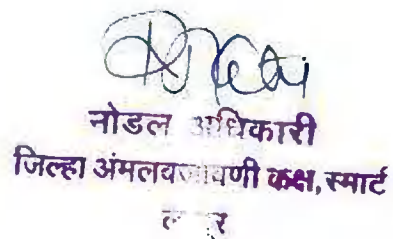 नोडल अधिकारी
जिल्हा अंमलबजावणी कक्ष, स्मार्ट